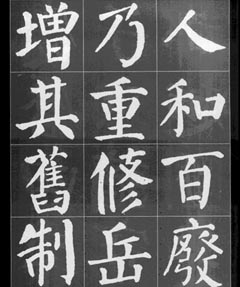 人和百廢
乃重修岳
增其舊制